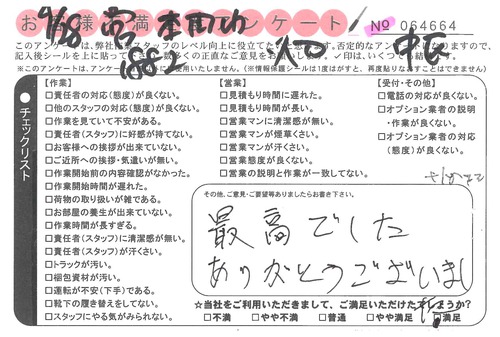 お客様ご不満アンケート No 064664
このアンケートは、弊社作業スタッフのレベル向上に役立てたいと思います。否定的なアンケートになりますので、
＊このアンケートは、アンケート 使用いたしません。(※情報保護シールは1度はがすと、再度貼りなおすことはできません)
チェックリスト
【作業】
□責任者の対応(態度)が良くない。
□他のスタッフの対応(態度)が良くない。
□作業を見ていて不安がある。
□責任者(スタッフ)に好感が持てない。
□お客様への挨拶が出来ていない。
□ご近所への挨拶・気遣いが無い。
□作業開始前の内容確認がなかった。
□作業開始時間が遅れた。
□荷物の取り扱いが雑である。
□お部屋の養生が出来ていない。
□作業時間が長すぎる。
□責任者(スタッフ)に清潔感が無い。
□責任者(スタッフ)が汗くさい。
□トラックが汚い。
□梱包資材が汚い。
□運転が不安(下手)である。
□靴下の履き替えをしてない。
□スタッフにやる気がみられない。
【営業】
□見積もり時間に遅れた。
□見積もり時間が長い。
□営業マンに清潔感が無い。
□営業マンが煙草くさい。
□営業マンが汗くさい。
□営業態度が良くない。
□営業の説明と作業が一致してない。
【受付・その他】
□電話の対応が良くない。
□オプション業者の説明
・作業が良くない。
□オプション業者の対応
(態度)が良くない。
その他、ご意見・ご要望等ありましたらお書き下さい。
最高でした
ありがとうございまし
☆当社をご利用いただきまして、ご満足いただけたでしょうか?
□不満 □やや不満 □普通 □やや満足 満足